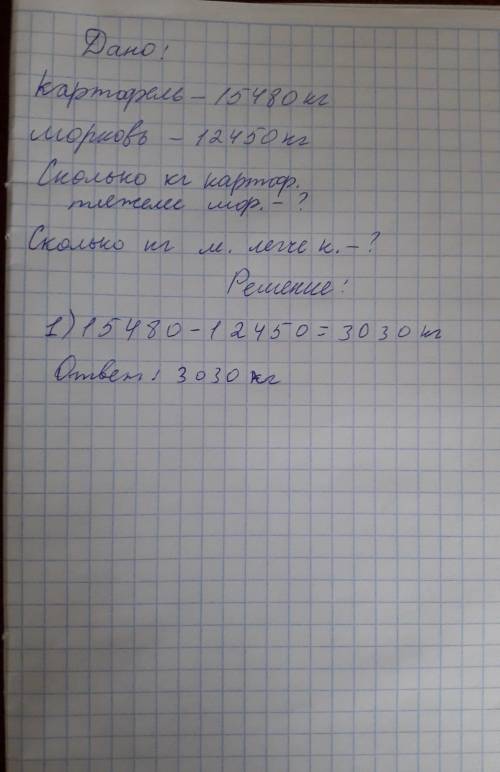 Дано:
Картофель - 15480 кг
Морковь - 12450 кг
Сколько кг картоф.
тяжелее мор. - ?
Сколько кг м. легче к. - ?
Решение:
1) 15480 - 12450 = 3030 кг
Ответ: 3030 кг